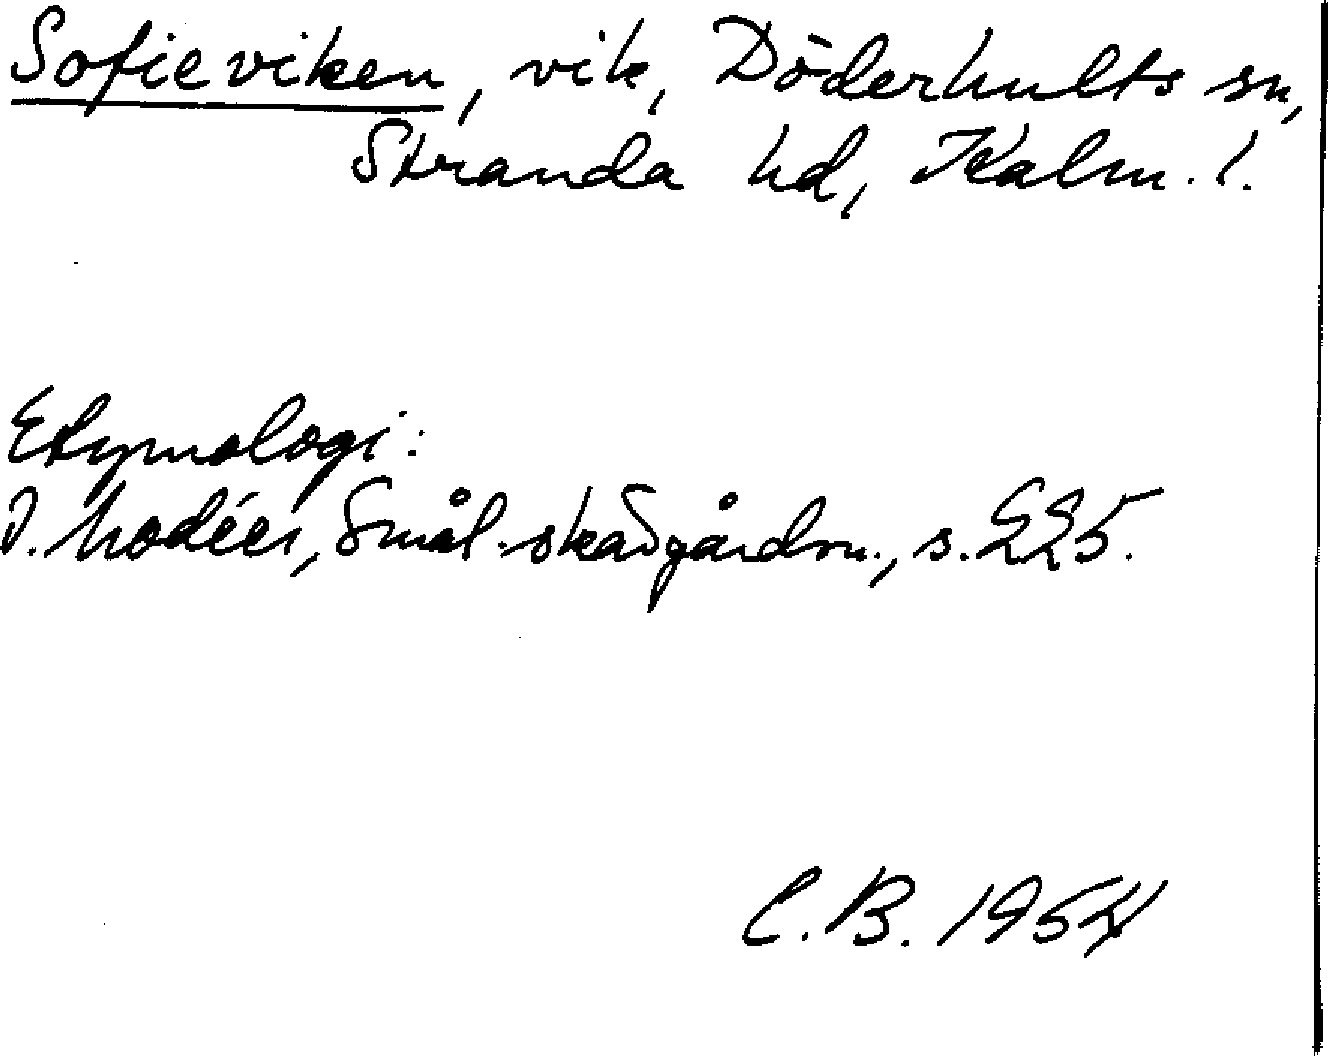 Sofieviken, vik, Döderhults sn,
Stranda hd, Kalm. l.
Etymologi:
I. Modéer, Smål. skärgårdsn., s. 225.
C. B. 1954